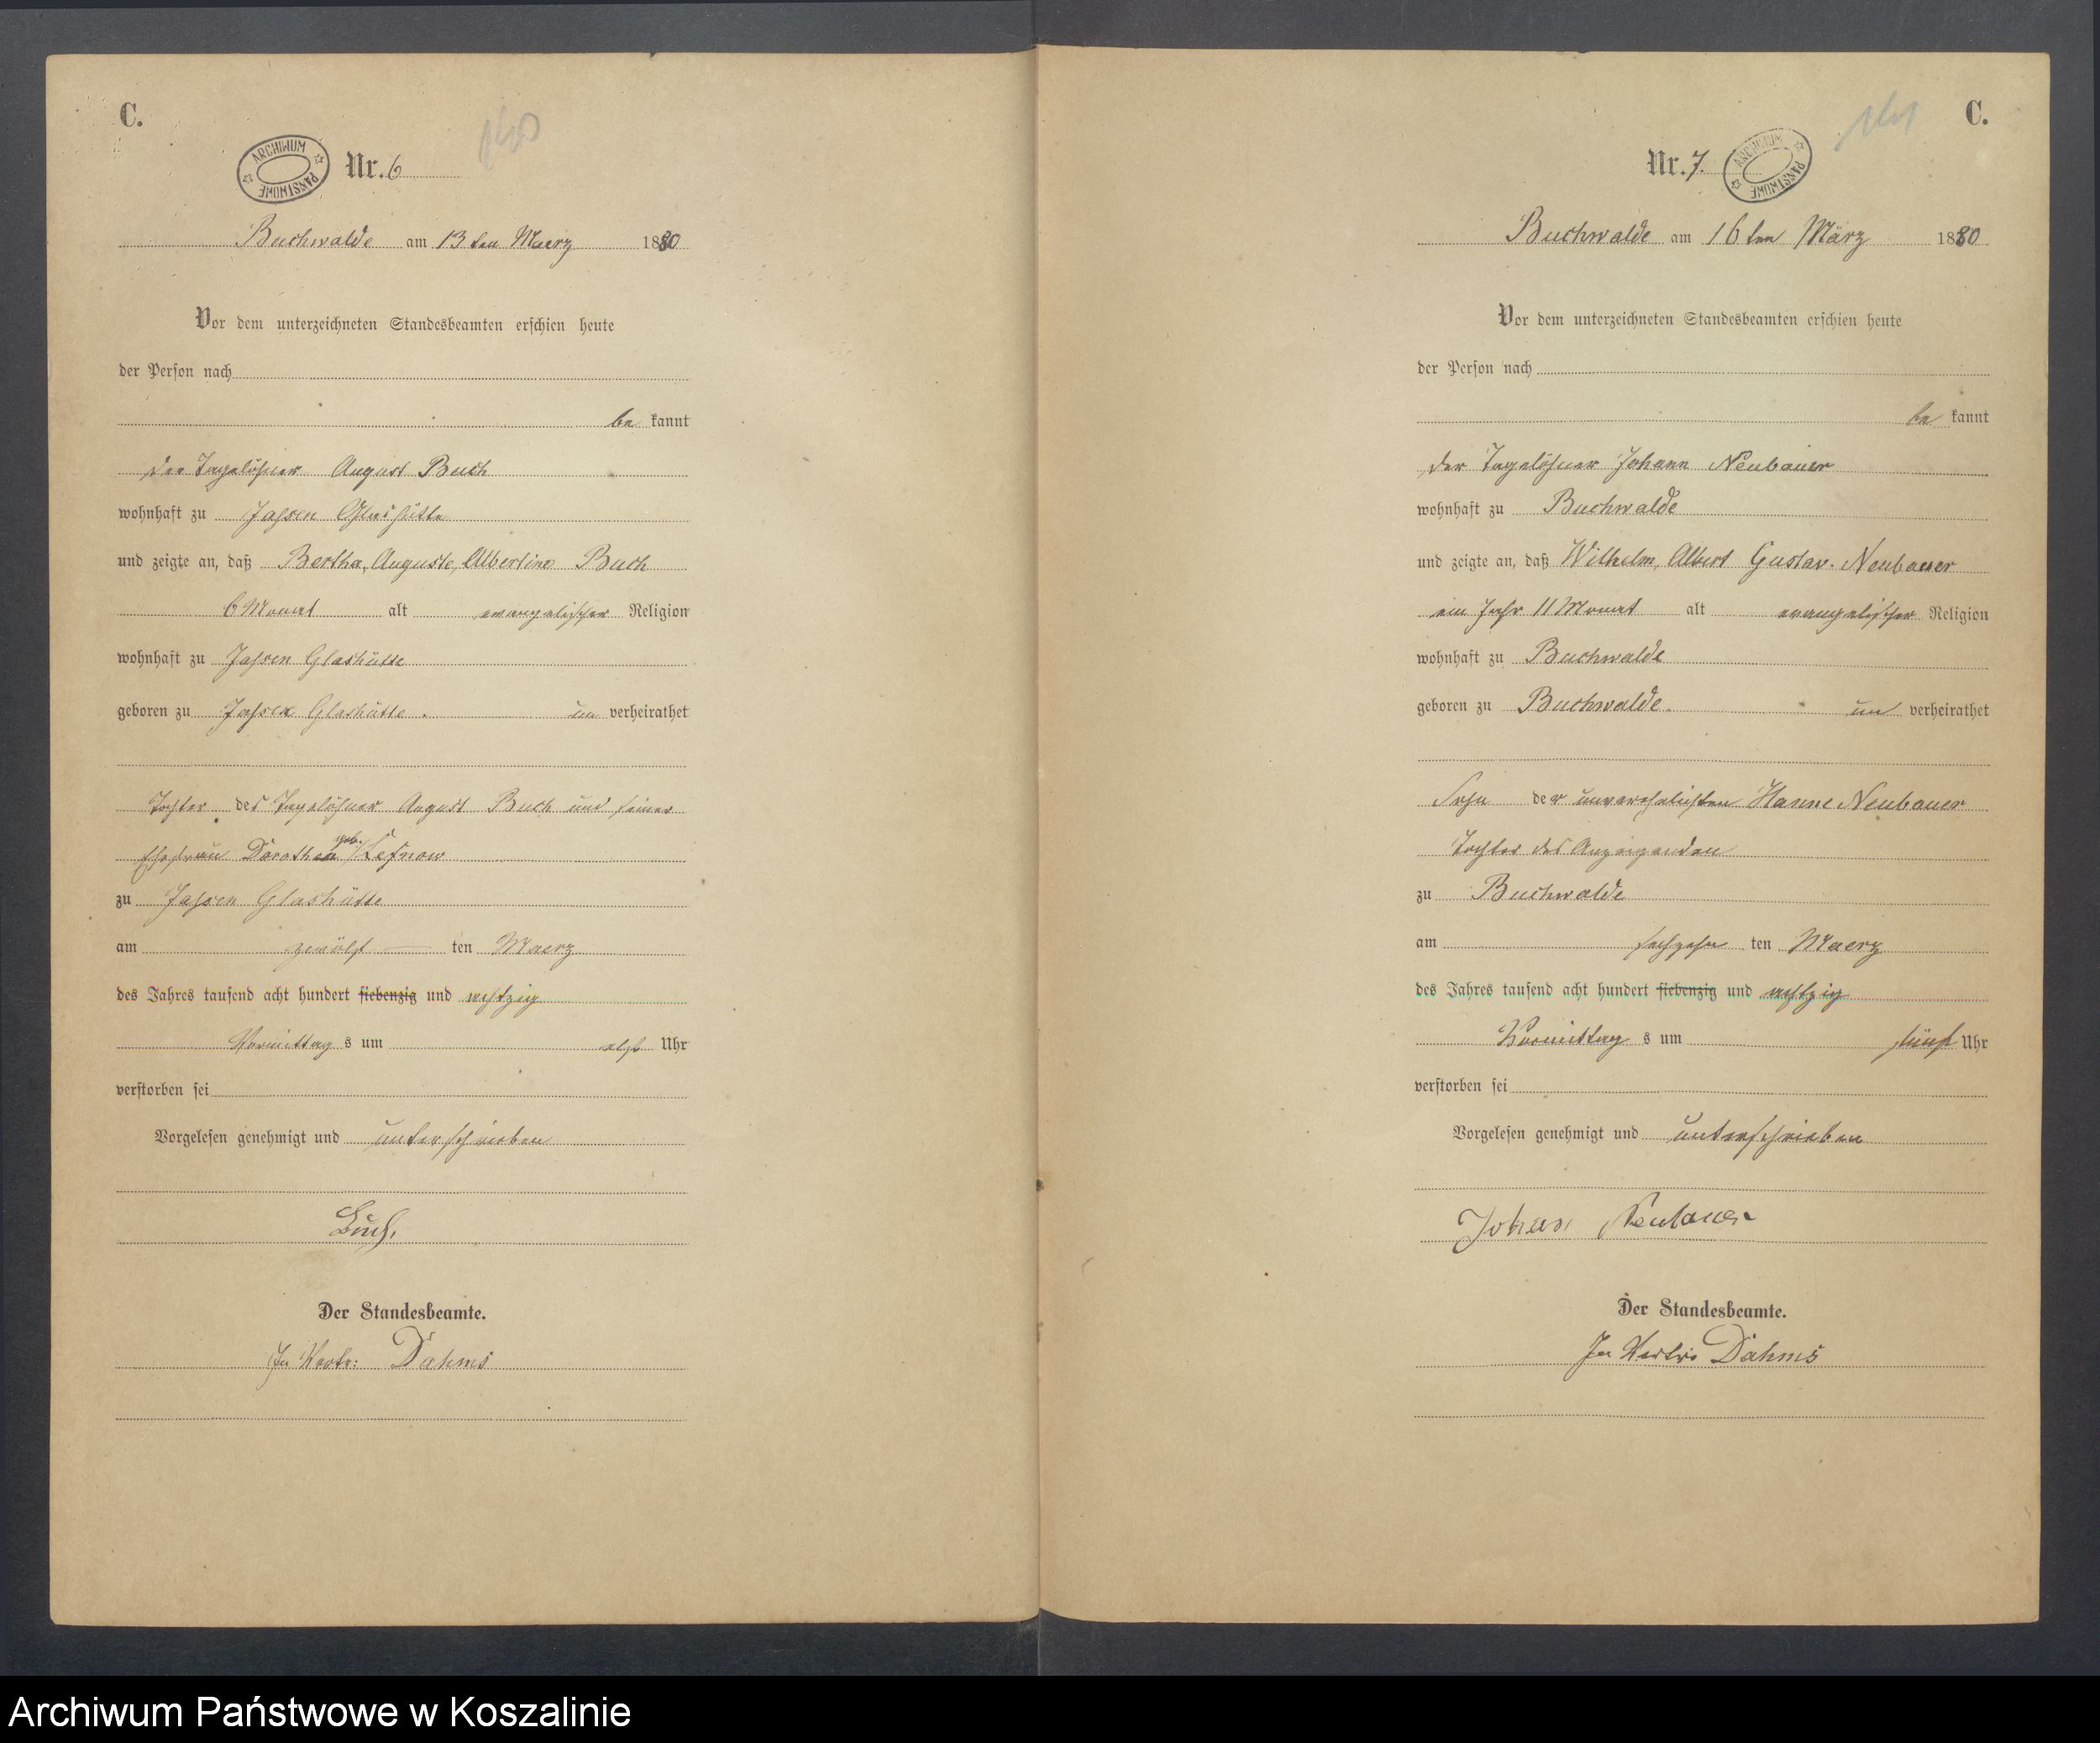 C.
140
ARCHIWUM PAŃSTWOWE
Nr. 6
Buchwalde am 13 ten Maerz 1880
Vor dem unterzeichneten Standesbeamten erschien heute
der Person nach
be kannt
der Tagelöhner August Buch
wohnhaft zu Jassen Glashütte
und zeigte an, daß Bertha, Auguste, Albertine Buch
6 Monat alt evangelischer Religion
wohnhaft zu Jassen Glashütte
geboren zu Jassen Glashütte. un verheirathet
Tochter des Tagelöhner August Buch und seiner
Ehefrau Dorothea geb.
zu Jassen Glashütte
am zwölf ten Maerz
des Jahres tausend acht hundert siebenzig und achtzig
Vormittag s um Uhr
verstorben sei
Vorgelesen genehmigt und unterschrieben
Buch.
Der Standesbeamte.
In Vertr: Dahms
C.
141
Nr. 7.
ARCHIWUM PAŃSTWOWE
Buchwalde am 16 ten März 1880
Vor dem unterzeichneten Standesbeamten erschien heute
der Person nach
be kannt
der Tagelöhner Johann Neubauer
wohnhaft zu Buchwalde
und zeigte an, daß Wilhelm, Albert Gustav. Neubauer
ein Jahr 11 Monat alt evangelischer Religion
wohnhaft zu Buchwalde
geboren zu Buchwalde. un verheirathet
Sohn der unverehelichten Hanne Neubauer
Tochter des Anzeigenden
zu Buchwalde
am sechzehn ten Maerz
des Jahres tausend acht hundert siebenzig und achtzig
Vormittag s um fünf Uhr
verstorben sei
Vorgelesen genehmigt und unterschrieben
Johann Neubauer
Der Standesbeamte.
In Vertr: Dahms
Archiwum Państwowe w Koszalinie